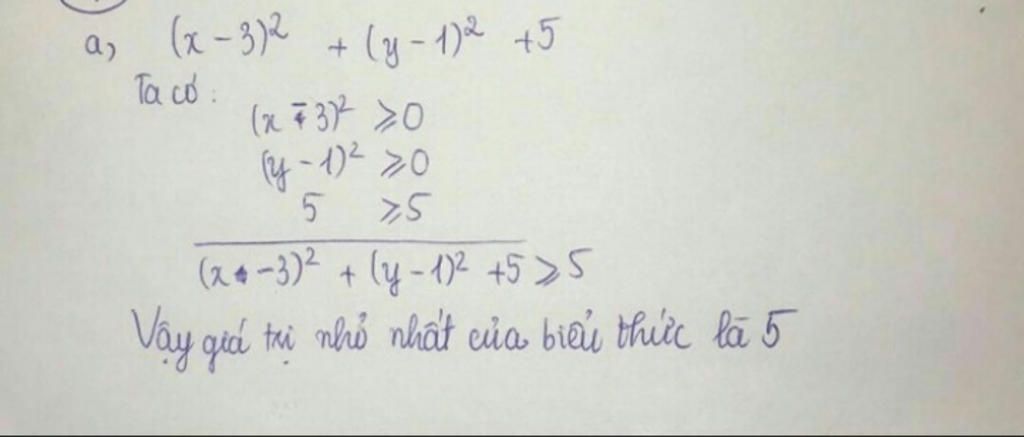 a, (x - 3)² + (y - 1)² + 5
Ta có:
(x - 3)² ⩾ 0
(y - 1)² ⩾ 0
5 ⩾ 5
(x - 3)² + (y - 1)² + 5 ⩾ 5
Vậy giá trị nhỏ nhất của biểu thức là 5